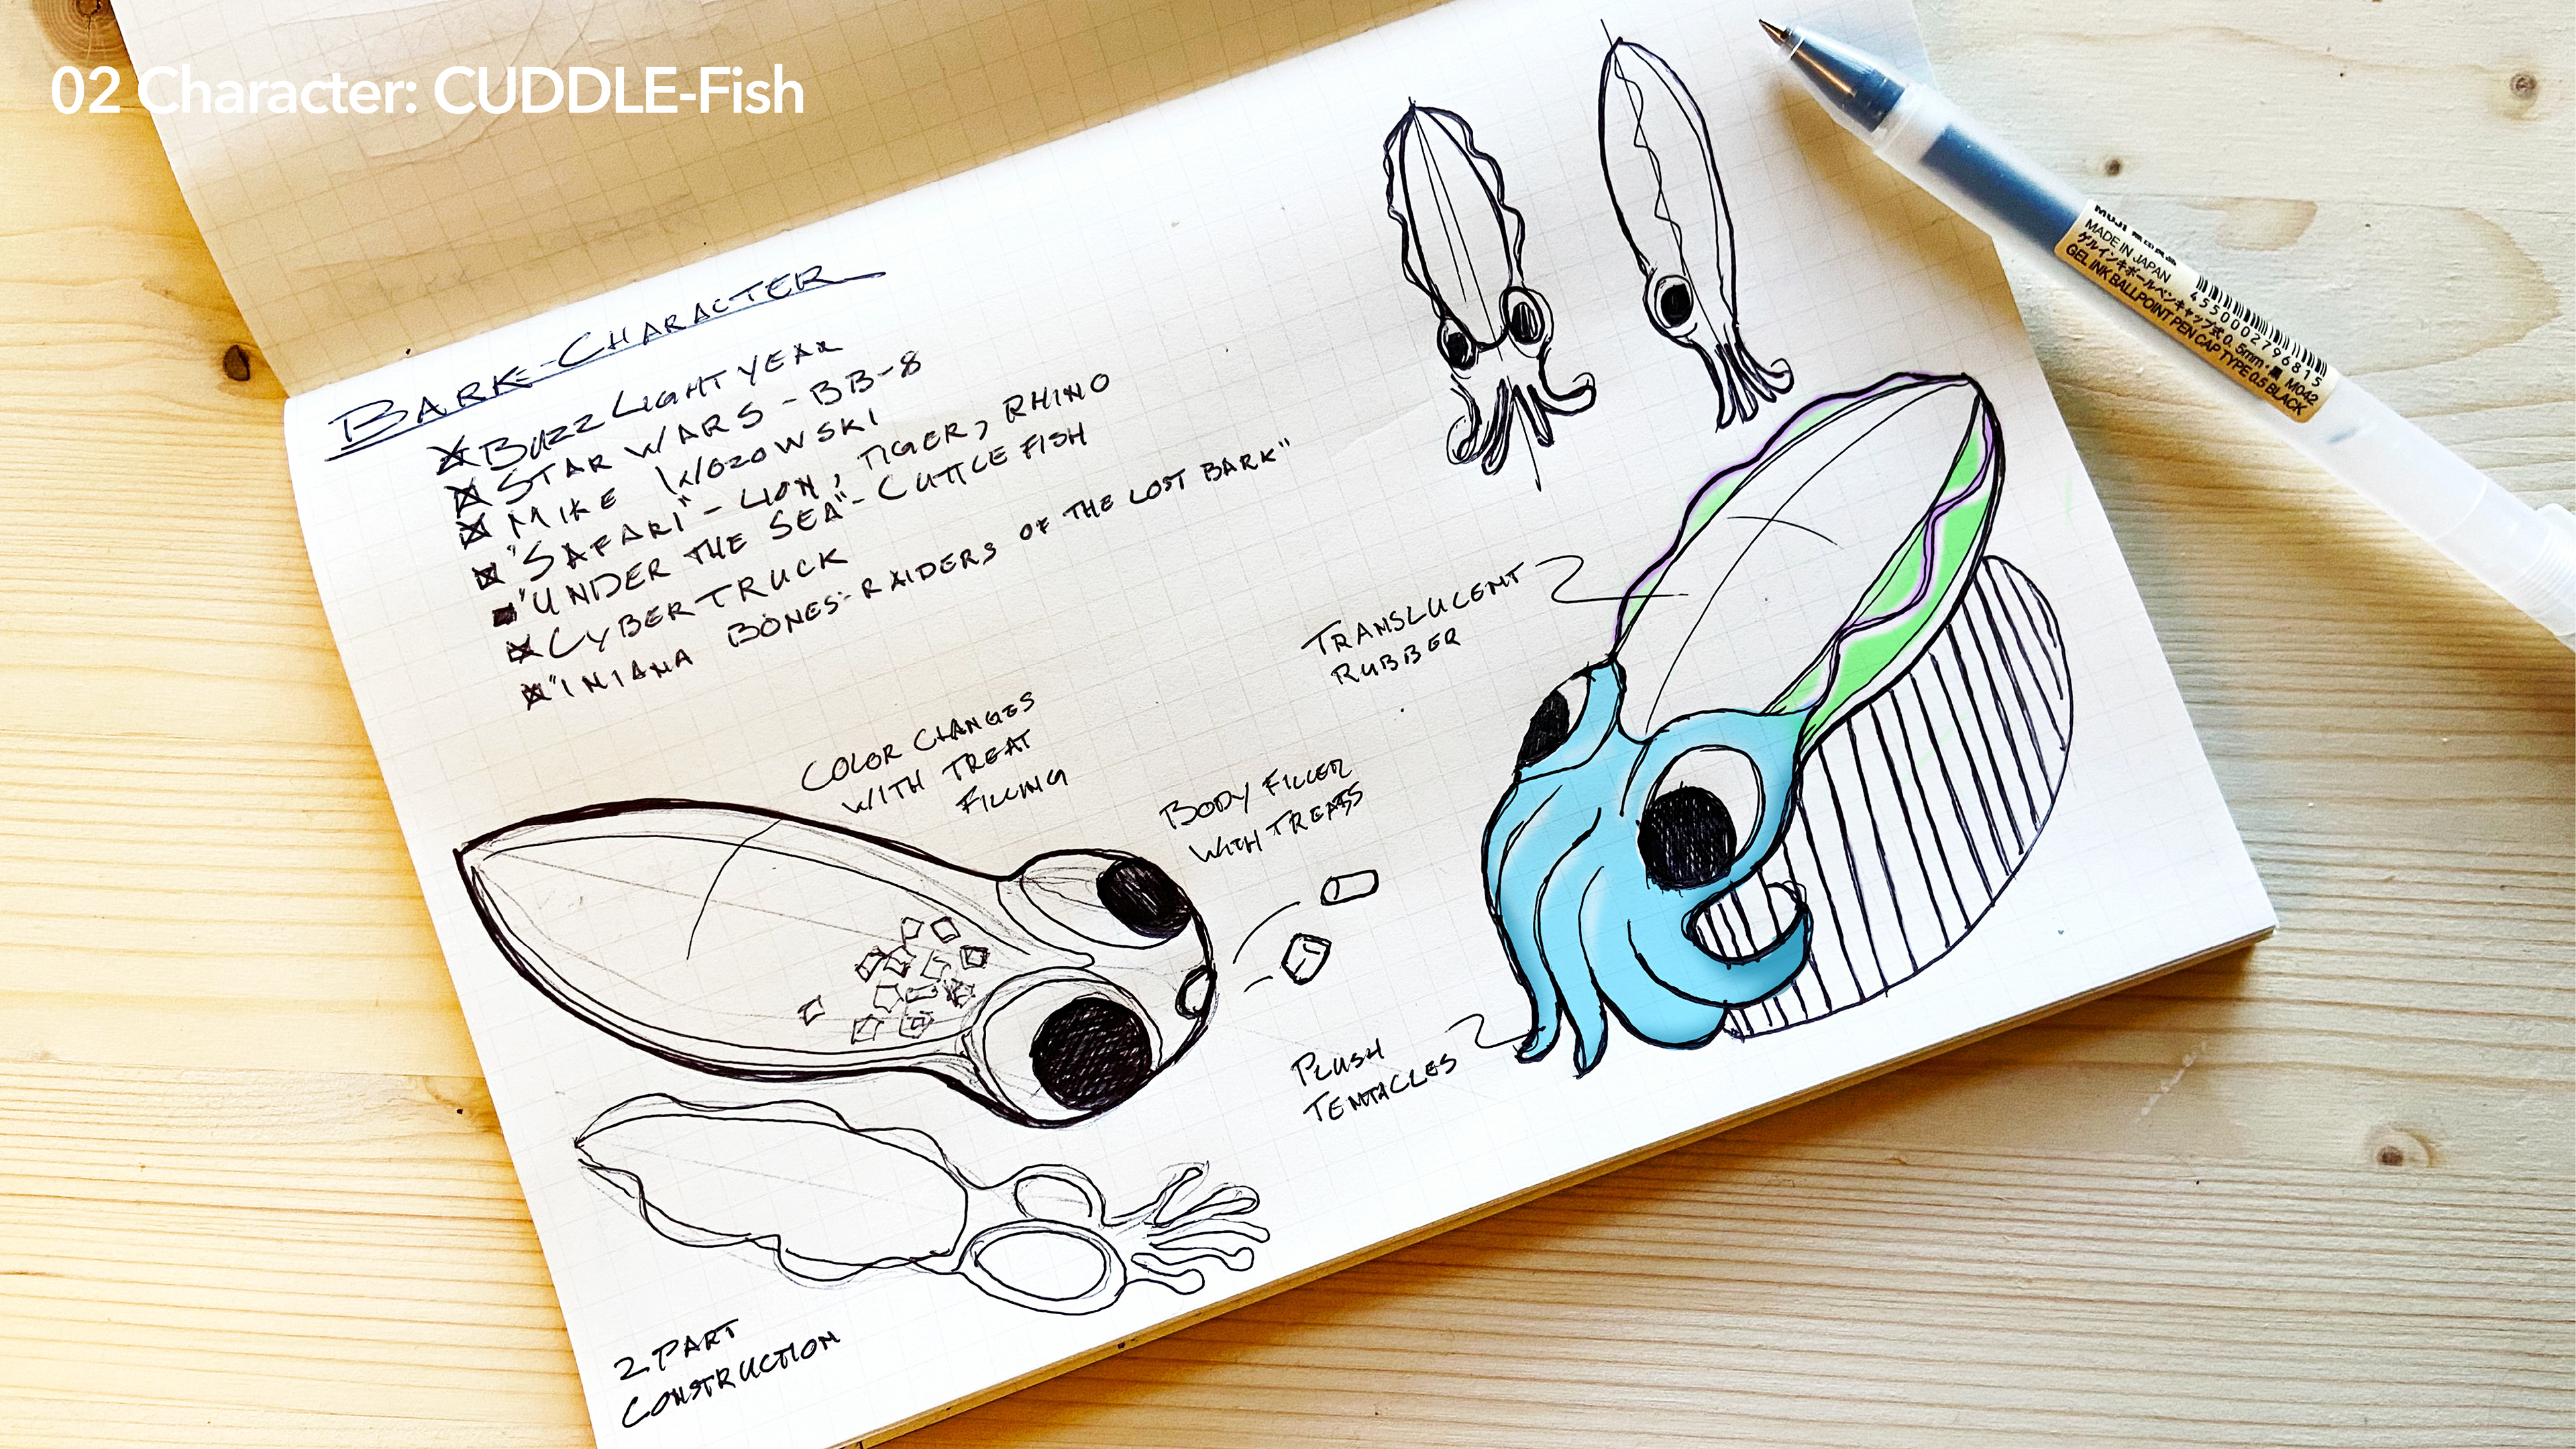 02 Character: CUDDLE-Fish
BARK-CHARACTER
BUZZ LIGHTYEAR
STAR WARS - BB-8
MIKE WOZOWSKI
"SAFARI" - LION, TIGER, RHINO
"UNDER THE SEA" - CUTTLE FISH
CYBERTRUCK
"INIANA BONES - RAIDERS OF THE LOST BARK"
COLOR CHANGES
WITH TREAT
FILLING
BODY FILLED
WITH TREATS
TRANSLUCENT
RUBBER
PLUSH
TENTACLES
2 PART
CONSTRUCTION
MADE IN JAPAN
ゲルインキボールペンキャップ式0.5mm・黒 M042
GEL INK BALLPOINT PEN CAP TYPE 0.5 BLACK
4550002796815